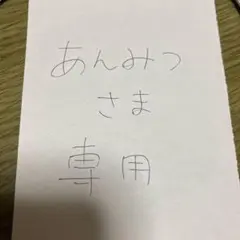 あんみつ
さま
専用